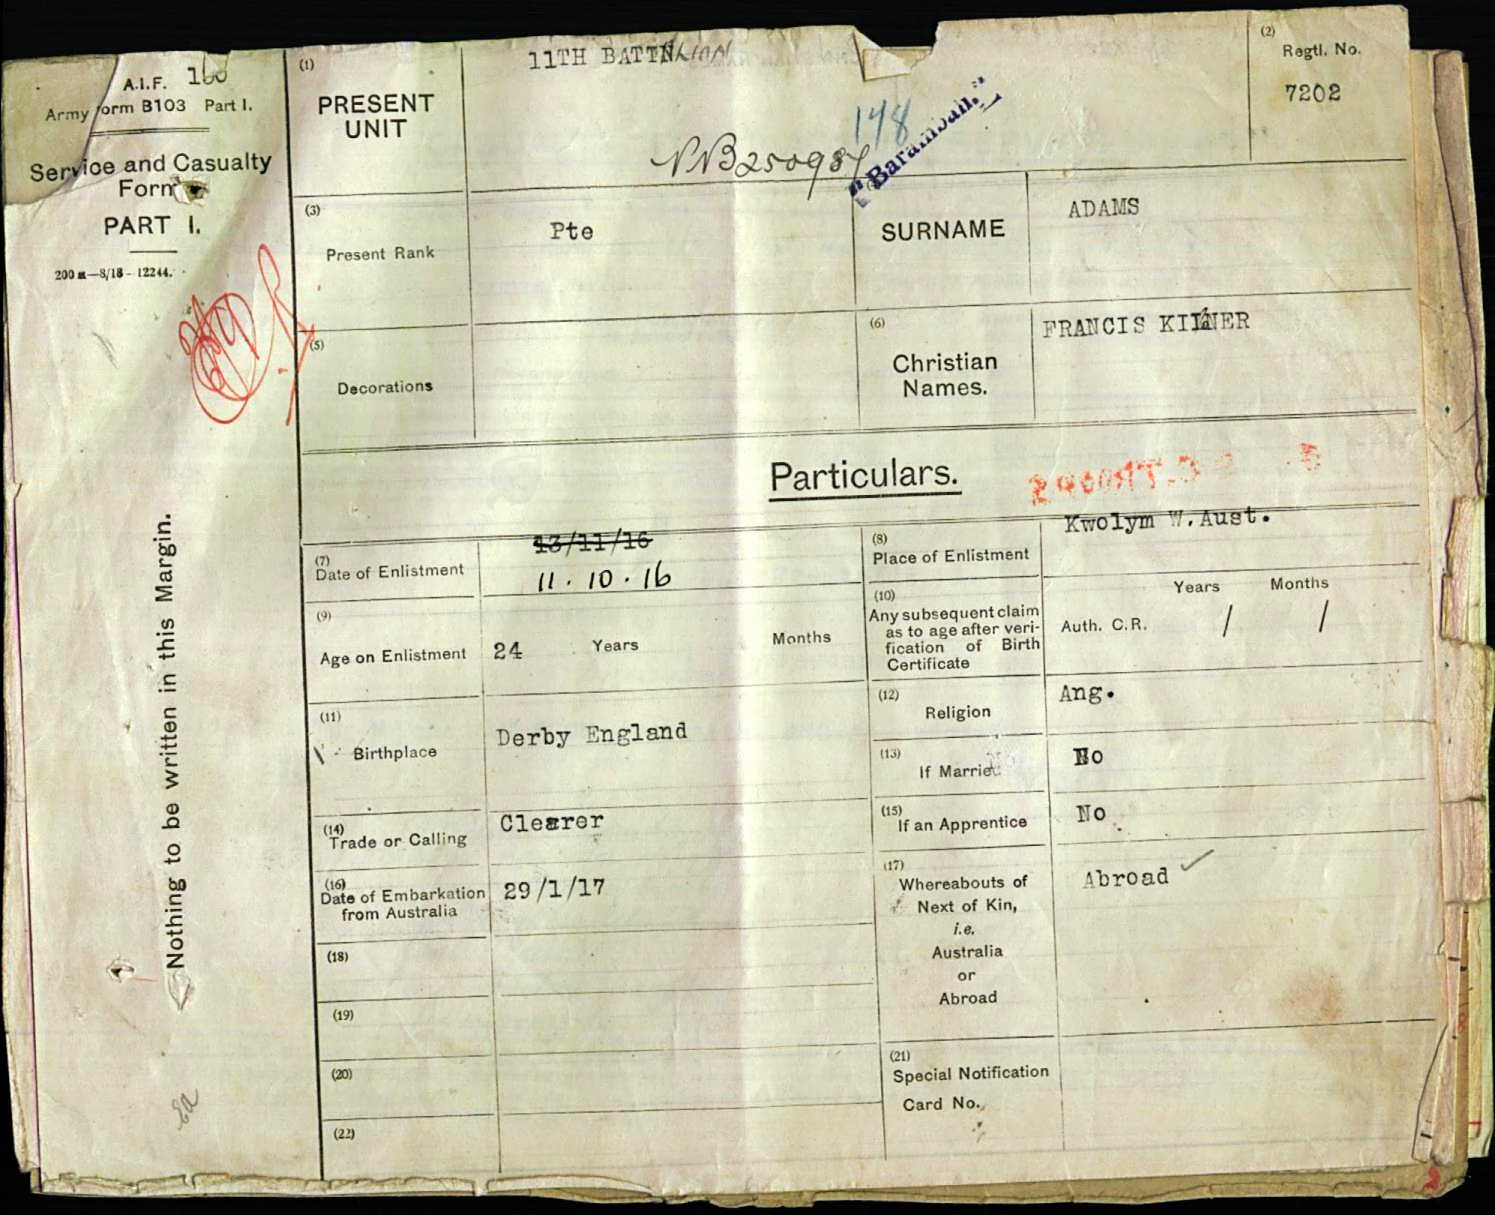 A.I.F.
Army Form B103 Part I.
Service and Casualty
Form
PART I.
200 m—8/18 - 12244.
Nothing to be written in this Margin.
(1)
PRESENT
UNIT
11TH BATTN
148
"Barambah."
(2)
Regtl. No.
7202
(3)
Present Rank
Pte
SURNAME
ADAMS
(5)
Decorations
(6)
Christian
Names.
FRANCIS KILNER
Particulars.
(7)
Date of Enlistment
13/11/16
11.10.16
(8)
Place of Enlistment
Kwolym W.Aust.
(9)
Age on Enlistment
24 Years Months
(10)
Any subsequent claim
as to age after veri-
fication of Birth
Certificate
Years Months
Auth. C.R. / /
(11)
Birthplace
Derby England
(12)
Religion
Ang.
(13)
If Married
No
(14)
Trade or Calling
Clearer
(15)
If an Apprentice
No
(16)
Date of Embarkation
from Australia
29/1/17
(17)
Whereabouts of
Next of Kin,
i.e.
Australia
or
Abroad
Abroad
(18)
(19)
(20)
(21)
Special Notification
Card No.
(22)